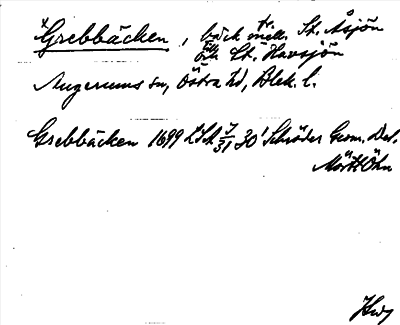 ×Grebbäcken, bäck fr. mell. St. Åsjön
till L:t. Havsjön
Augerums sn, Östra hd, Blek. l.
Grebbäcken 1699 LSA 7/31 30' Schröder Geom. Del.